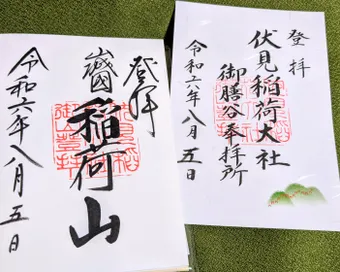 登拝
巌國 稲荷山
令和六年八月五日
登拝
伏見稲荷大社
御膳谷奉拝所
令和六年八月五日